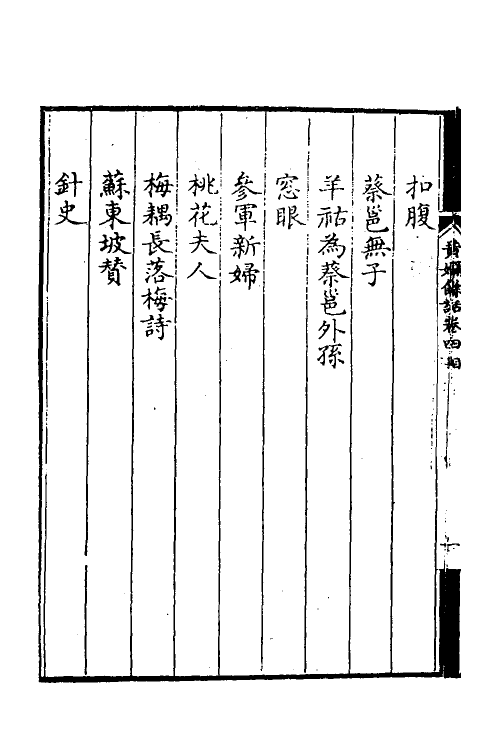 扣腹
蔡邕無子
羊祜為蔡邕外孫
窓眼
參軍新婦
桃花夫人
梅耦長落梅詩
蘇東坡贊
針史
黃嬭餘話卷四目